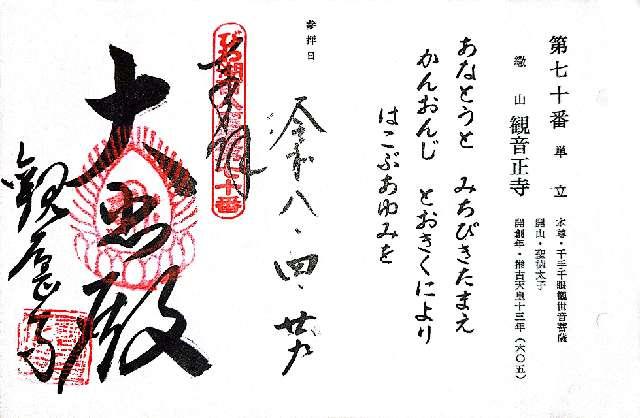 第七十番 単立
繖山 観音正寺
本尊・千手千眼観世音菩薩
開山・聖徳太子
開創年・推古天皇十三年(六〇五)
あなとうと みちびきたまえ
かんおんじ とおきくにより
はこぶあゆみを
参拝日
令和八・四・廿九
奉拝
大悲殿
観音正寺